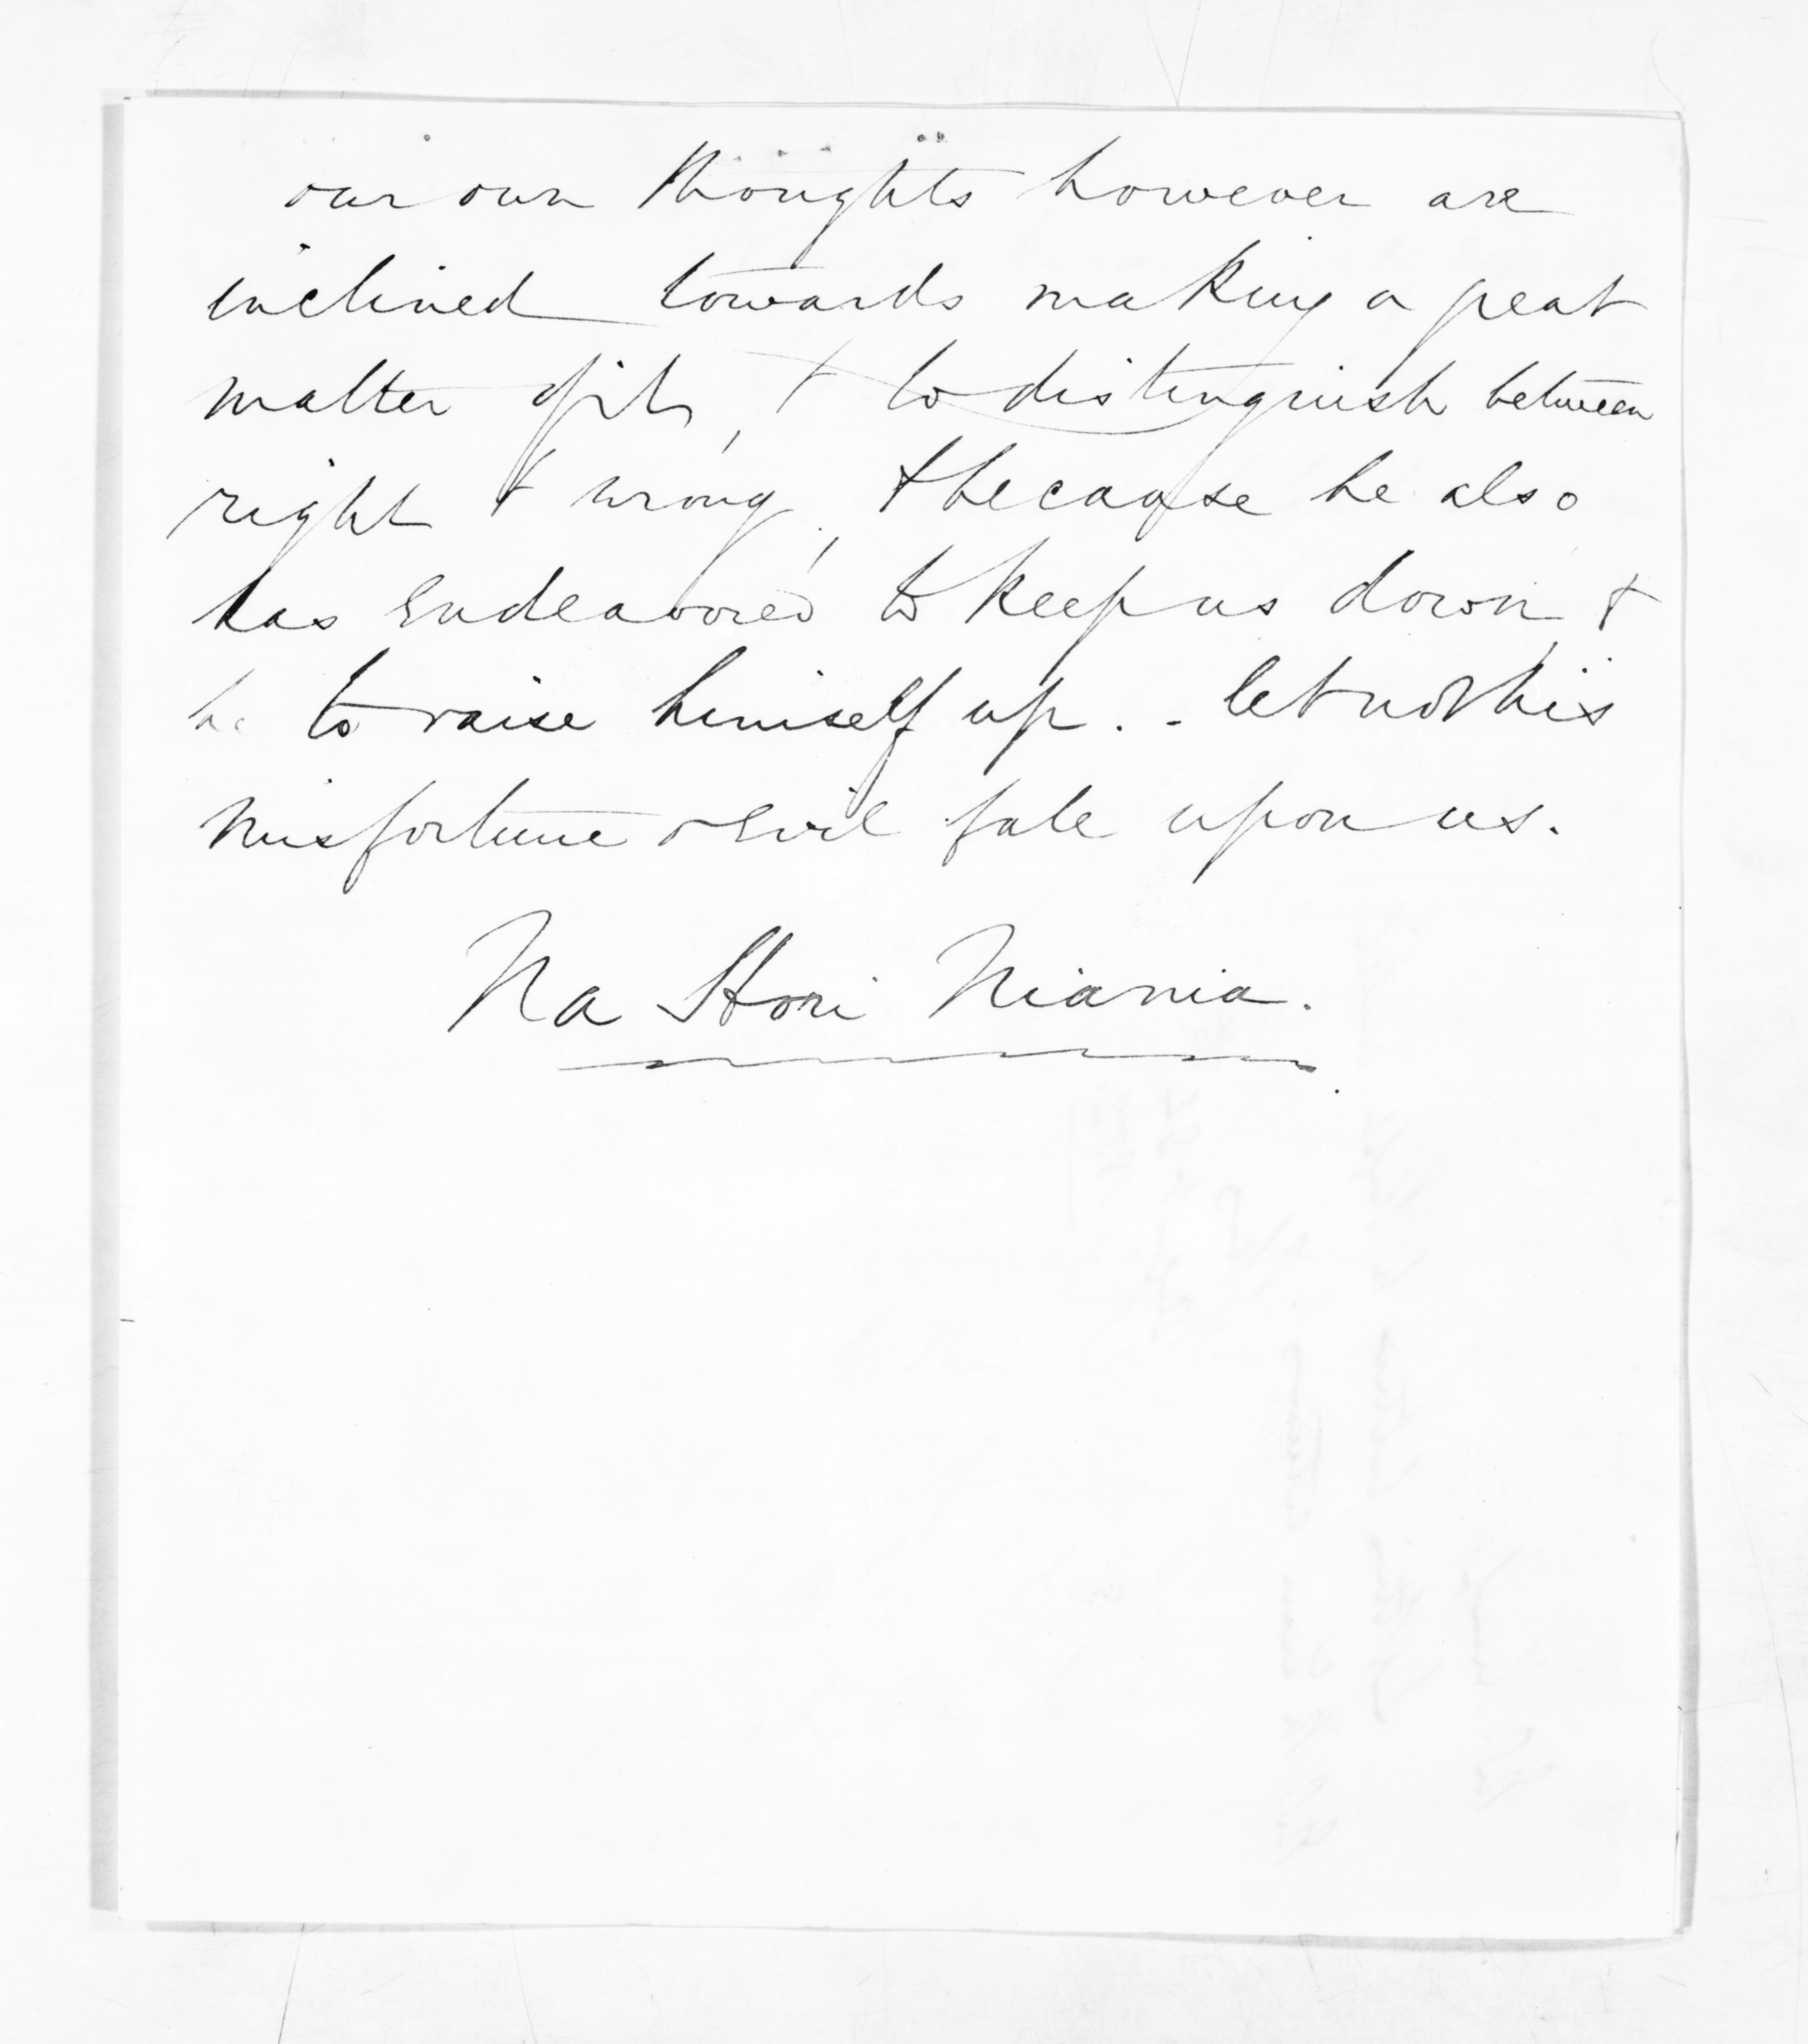 our own thoughts however are
inclined towards making a great
matter of it, & to distinguish between
right & wrong, & because he also
has endeavored to keep us down, &
he to raise himself up. - let not his
misfortune & evil fall upon us.
Na Hori Niania.